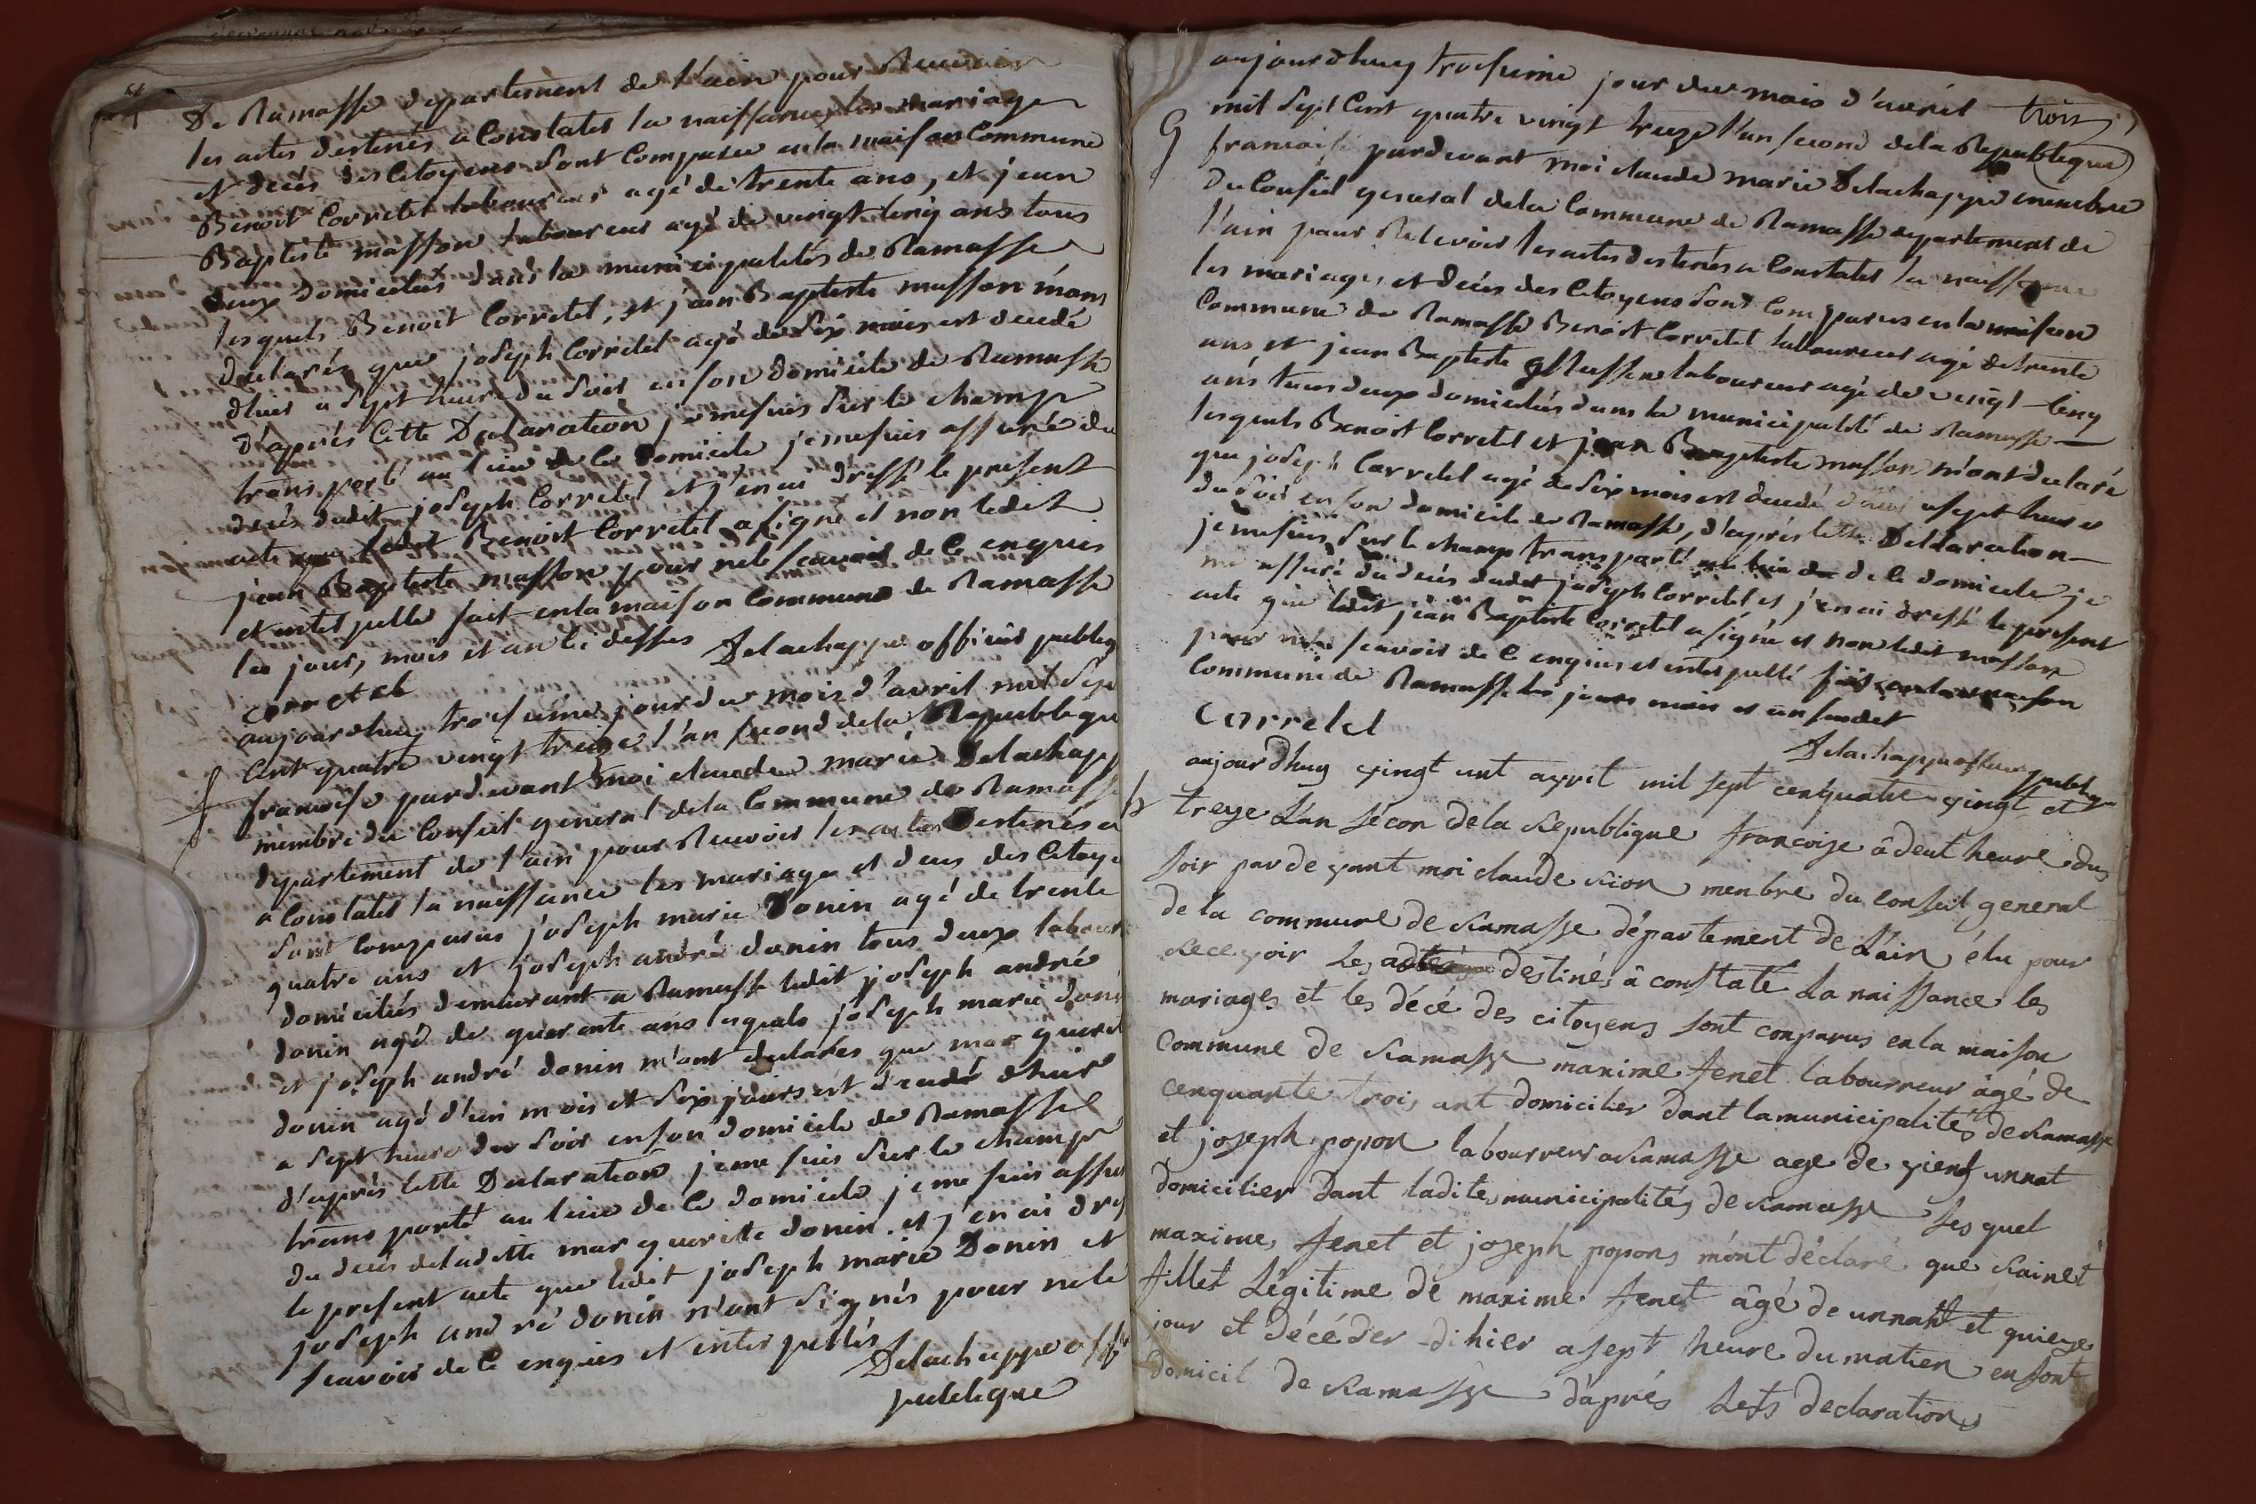 De Ramasse departement de l'ain pour Recevoir
les actes destinés a Constater la naissance les mariages
et décés des Citoyens sont Comparu en la maison Commune
Benoit Corretel laboureur agé de trente ans, et jean
Baptiste masson laboureur agé de vingt cinq ans tous
deux domiciliés dans la municipalités de Ramasse
lesquels Benoit Corretel, et jean Baptiste masson m'ons
declarés que joseph Corretel agé de six mois est decedé
d'hier a sept heure du soir en son domicile de Ramasse
d'aprés Cette Declaration je me suis sur le champ
transporté au lieu de Ce domicile je me suis assuré du
decés dudit joseph Corretel et j'en ai dressé le present
acte que ledit Benoit Corretel a signé et non ledit
jean Baptiste masson pour ne le scavoir de Ce enquis
et interpellé fait en la maison Commune de Ramasse
les jour, mois et an Ci dessus Delachappe officier publiq
corretel
aujourdhuy troisieme jour du mois d'avril mil sep
Cent quatre vingt treize l'an second de la Republique
francoise pardevant moi claude marie Delachapp
membre du Conseil general de la Commune de Ramasse
departement de l'ain pour Recevoir les actes Destinés a
a Constater la naissance les mariages et deces des Citoye
sont Comparus joseph marie Donin agé de trente
quatre ans et joseph andré donin tous deux labour
domiciliés demeurant a Ramasse ledit joseph andré
donin agé de quarante ans lesquels joseph marie doni
et joseph andré donin m'ont declarés que marguerit
donin agé d'un mois et six jours est decedé d'hier
a sept heure du soir en son domicile de Ramasse
d'aprés Cette Declaration je me suis sur le champ
transporté au lieu de Ce domicile je me suis assur
du decés de laditte marguerite donin et j'en ai drs
le present acte que ledit joseph marie Donin et
joseph andré donin n'ont signés pour ne le
scavoir de Ce enquis et interpellés
Delachappe off
publique
aujourdhuy troisieme jour du mois d'avril trois
mil sept Cent quatre vingt treize l'an second de la Republique
9
francoise pardevant moi claude marie Delachappe membre
du Conseil general de la Commune de Ramasse departement de
l'ain pour Recevoir les actes destinés a Constater la naissance
les mariages et décés des Citoyens sont Comparus en la maison
Commune de Ramasse Benoit Corretel laboureur agé de trente
ans et jean Baptiste Masson laboureur agé de vingt Cinq
ans tous deux domiciliés dans la municipalité de Ramasse
lesquels Benoit Corretel et jean Baptiste masson m'ont declaré
que joseph Corretel agé de six mois est decedé d'hier a sept heure
du soir en son domicile de Ramasse, d'aprés Cette Declaration
je me suis sur le champ transporté au lieu de Ce domicile je
me assuré du decés dudit joseph Corretel et j'en ai dressé le present
acte que ledit jean Baptiste Corretel a signé et non ledit masson
pour ne le scavoir de Ce enquis et interpellé fait en la maison
Commune de Ramasse les jours mois et an susdit
Corretel
Delachappe officier publique
aujourdhuy vingt unt avvril mil sept cenquatre vingt et
treze L'an sécon de la Republique francoize â deut heure du
soir parde vant moi claude Rion menbre du conseil general
de la commune de Ramasse département de L'ain élu pour
Recevoir les actes destinés â constaté La naissance les
mariages et les décé des citoyens sont conparus en la maison
Commune de Ramasse maxime fenet labourreur âgé de
cenquante trois ant domicilier Dant la municipalités de Ramasse
et joseph popon labourreur a Ramasse age de vient unnat
domicilier Dant ladite municipalités de Ramasse Les quel
maxime fenet et joseph popons m'ont déclaré que Rainet
fillet Légitime dé maxime fenet âgé de unnant et quieze
jour et décéder dihier a sept heure du matien en sont
domicil de Ramasse d'aprés Lets declarations